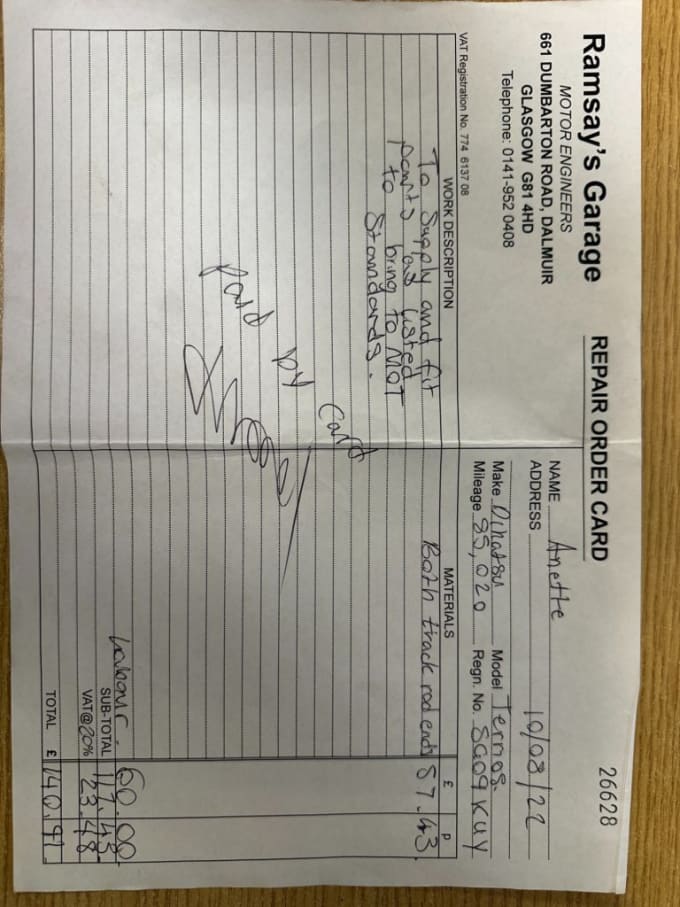 Ramsay's Garage
MOTOR ENGINEERS
661 DUMBARTON ROAD, DALMUIR
GLASGOW G81 4HD
Telephone: 0141-952 0408
VAT Registration No. 774 6137 08
REPAIR ORDER CARD
26628
NAME Anette
ADDRESS 10/08/22
Make Dihatsu Model Terios.
Mileage 85,020 Regn. No. SG09 KUY
WORK DESCRIPTION MATERIALS £ P
To Supply and fit Both track rod ends 57.43.
parts as listed
to bring to MOT
Standards.
paid by Card
Labour. 60.00
SUB-TOTAL 117.43
VAT@20% 23.48
TOTAL £ 140.91